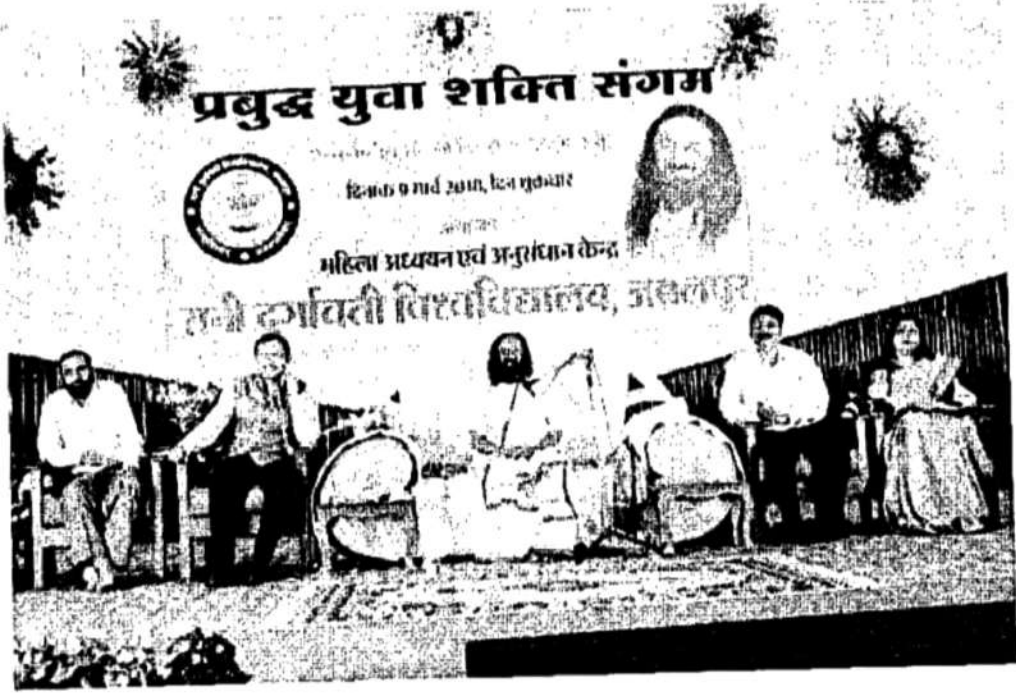 प्रबुद्ध युवा शक्ति संगम
दिनांक 9 मार्च 2018, दिन शुक्रवार
महिला अध्ययन एवं अनुसंधान केन्द्र
रानी दुर्गावती विश्वविद्यालय, जबलपुर